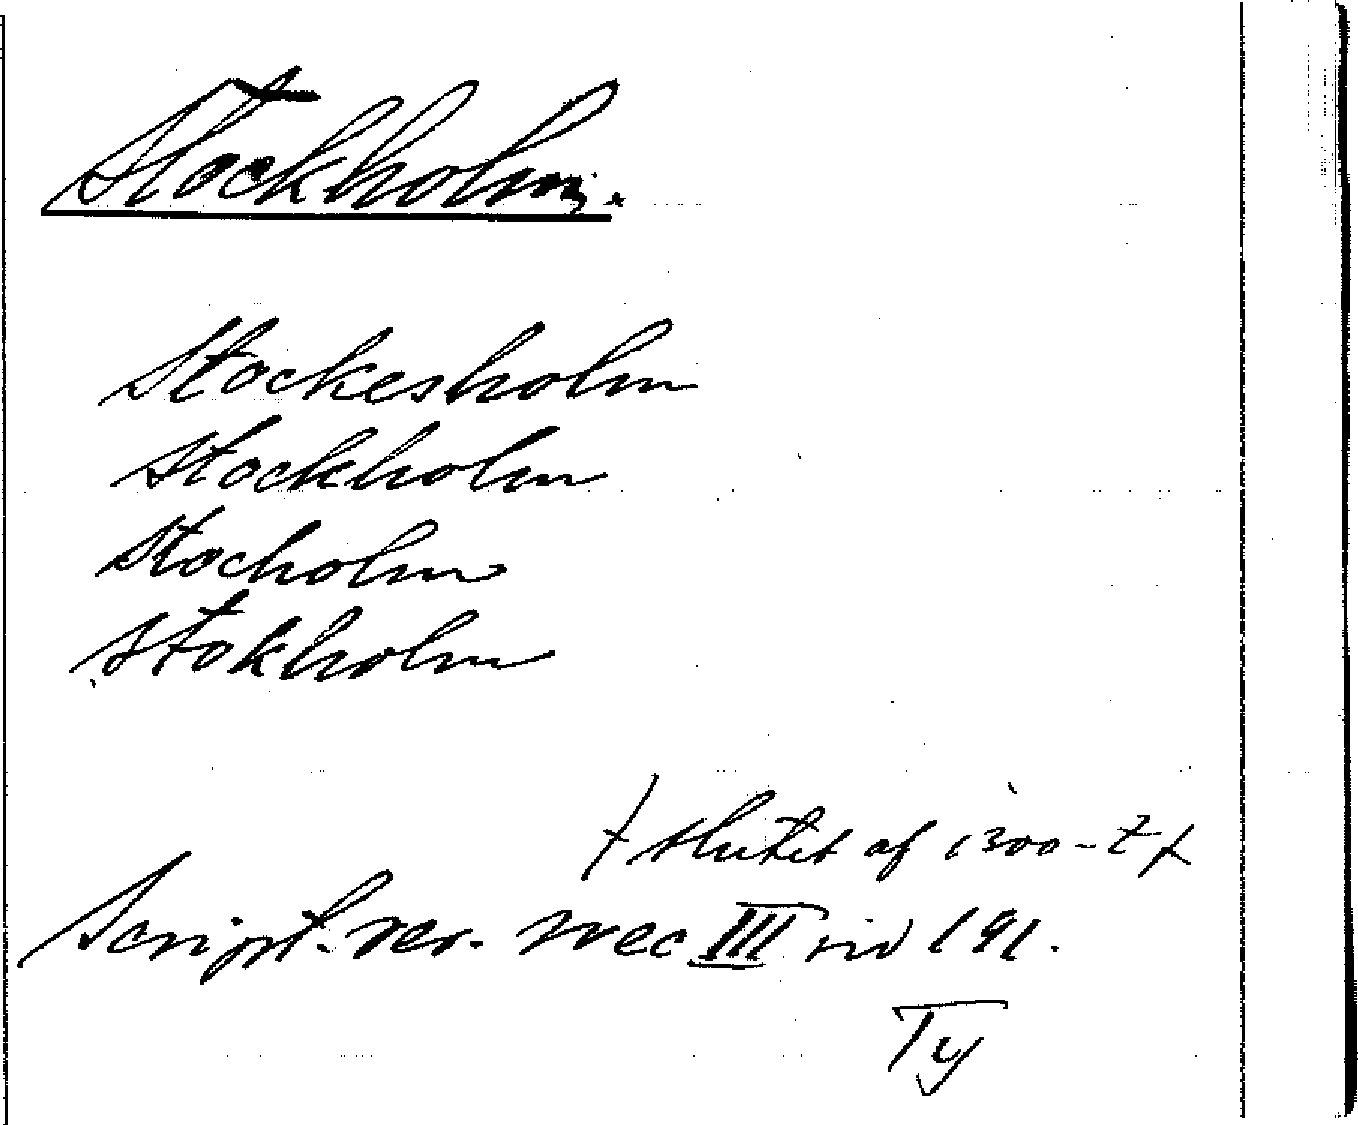 Stockholm.
Stockesholm
Stockholm
Stocholm
Stokholm
slutet af 1300-t
Script. rer. svec III sid 191.
Ty